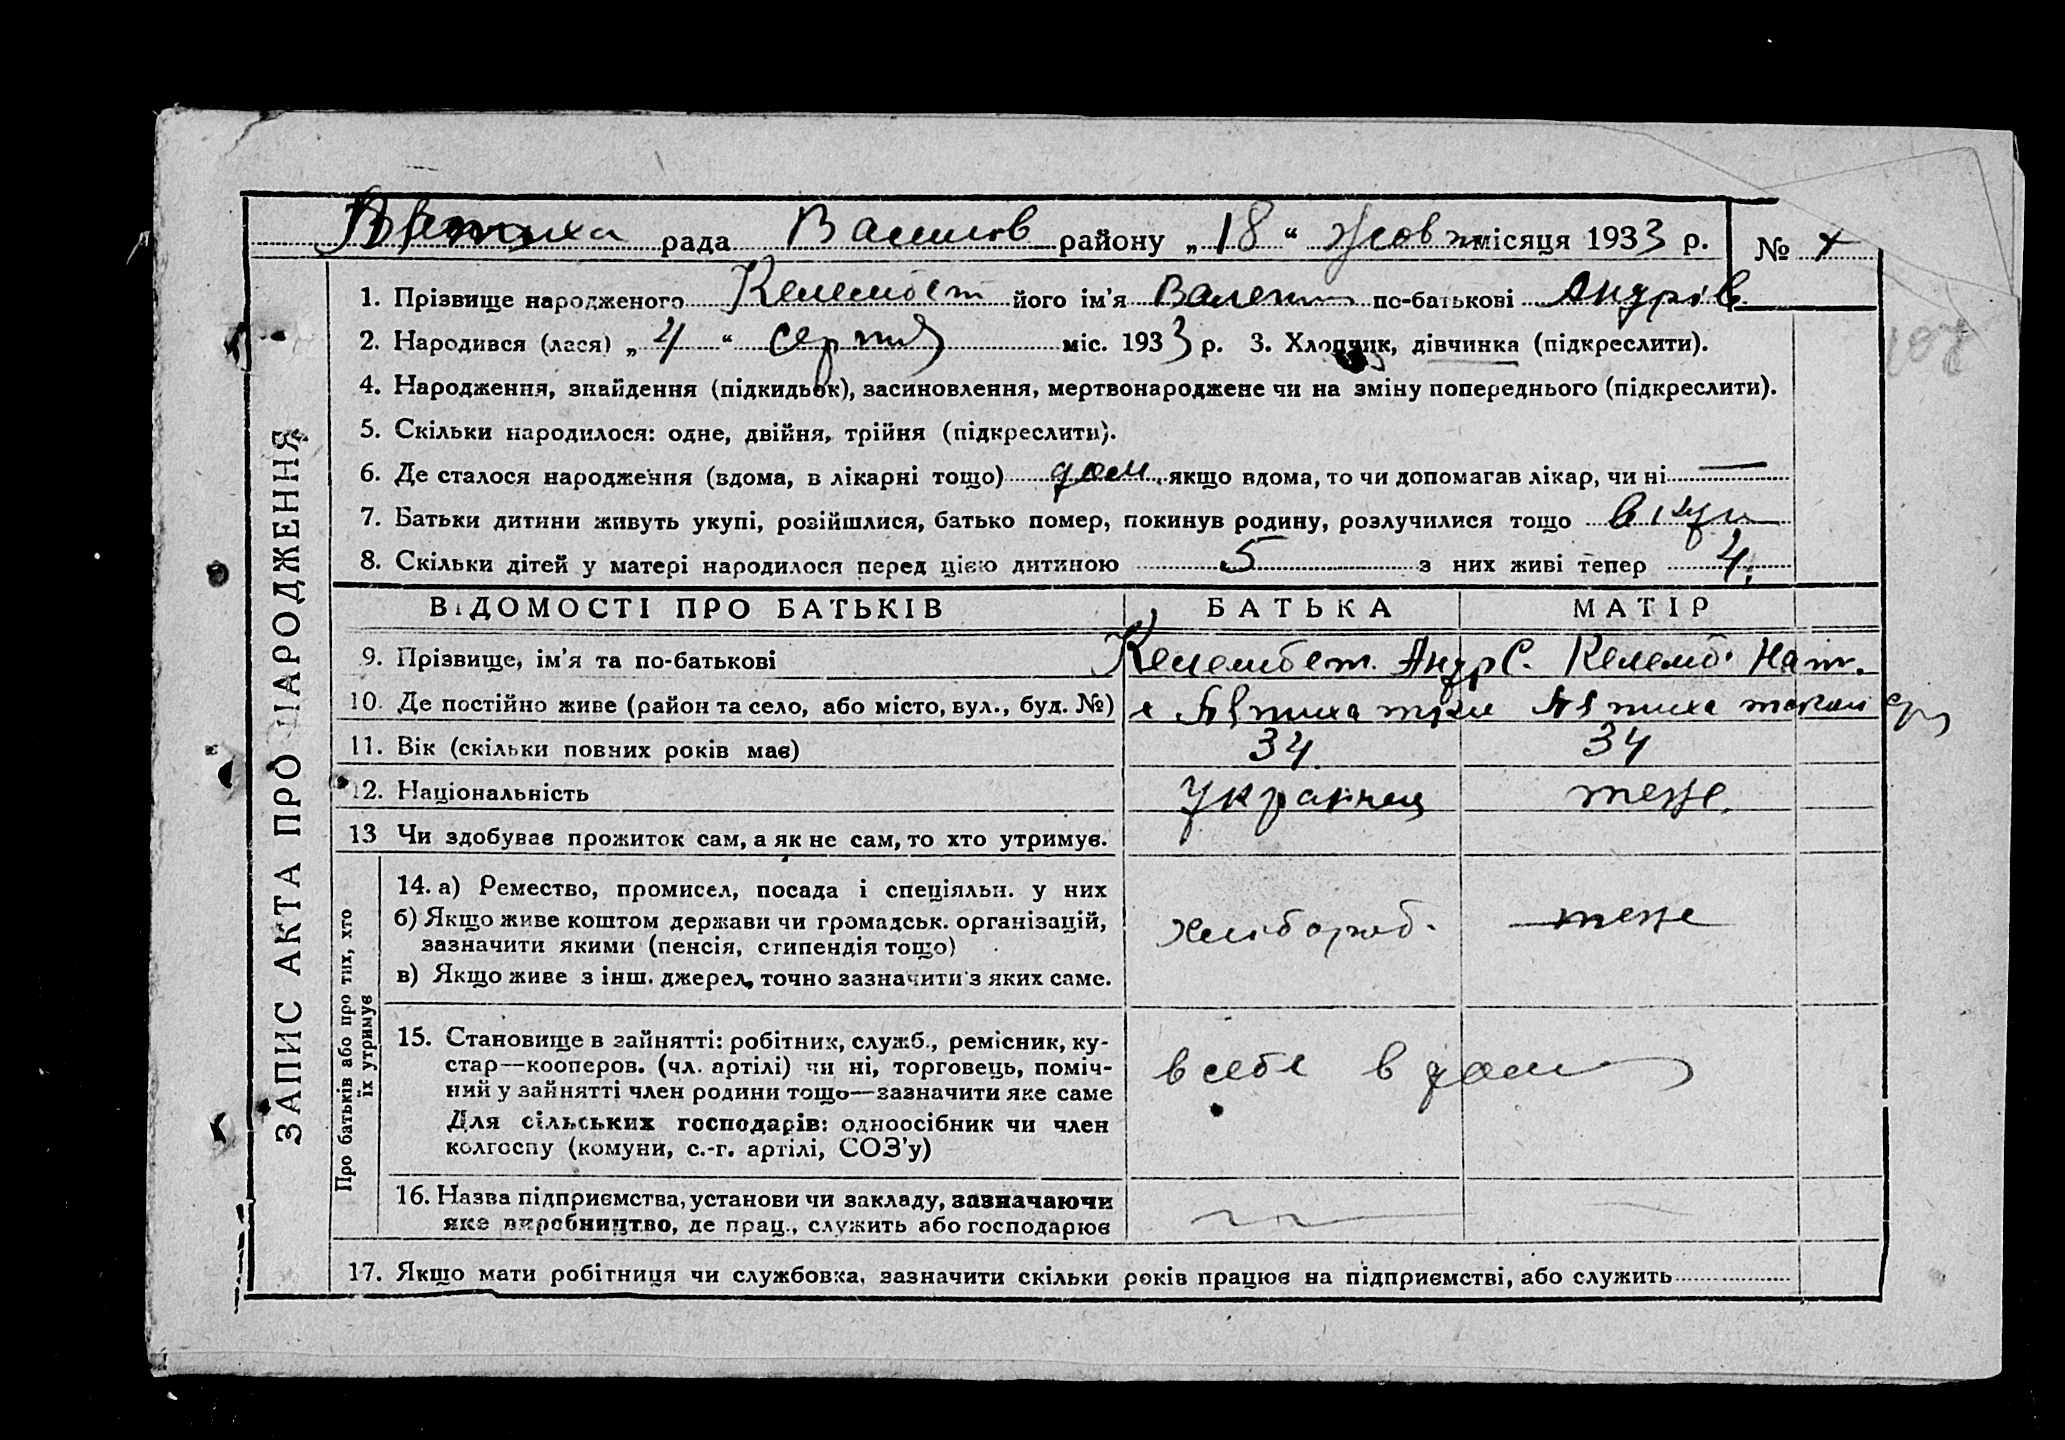 рада Васильов району „18" Жовт місяця 1933 р. №
1. Прізвище народженого Келембет його ім'я Валент по-батькові Андрів
2. Народився (лася) „4" серпня міс. 1933 р. 3. Хлопчик, дівчинка (підкреслити).
4. Народження, знайдення (підкидьок), засиновлення, мертвонароджене чи на зміну попереднього (підкреслити).
5. Скільки народилося: одне, двійня, трійня (підкреслити).
6. Де сталося народження (вдома, в лікарні тощо) дом. якщо вдома, то чи допомагав лікар, чи ні —
7. Батьки дитини живуть укупі, розійшлися, батько помер, покинув родину, розлучилися тощо
8. Скільки дітей у матері народилося перед цією дитиною 5 з них живі тепер 4.
ЗАПИС АКТА ПРО НАРОДЖЕННЯ
ВІДОМОСТІ ПРО БАТЬКІВ БАТЬКА МАТІР
9. Прізвище, ім'я та по-батькові Келембет. Андр С. Келемб. Нат.
10. Де постійно живе (район та село, або місто, вул., буд. №)
11. Вік (скільки повних років має) 34 34
12. Національність Українец теже.
13 Чи здобуває прожиток сам, а як не сам, то хто утримує.
Про батьків або про тих, хто
їх утримує
14. а) Ремество, промисел, посада і спеціяльн. у них
б) Якщо живе коштом держави чи громадськ. організацій,
зазначити якими (пенсія, стипендія тощо)
хлібороб. теже
в) Якщо живе з інш. джерел, точно зазначити з яких саме.
15. Становище в зайнятті: робітник, служб., ремісник, ку-
стар—кооперов. (чл. артілі) чи ні, торговець, поміч-
ний у зайнятті член родини тощо—зазначити яке саме
в себе в дом
Для сільських господарів: одноосібник чи член
колгоспу (комуни, с.-г. артілі, СОЗ'у)
16. Назва підприємства, установи чи закладу, зазначаючи
яке виробництво, де прац., служить або господарює
17. Якщо мати робітниця чи службовка, зазначити скільки років працює на підприємстві, або служить